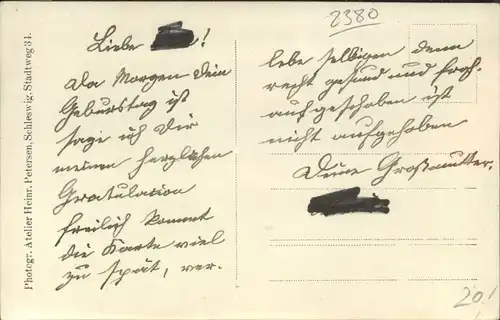 2380
Liebe !
Da Morgen Dein
Geburstag ist
sage ich Dir
meinen herzlichen
Gratulation
freilich kommt
die Karte viel
zu spät, ver.
lebe selbigen denn
recht gesund und froh.
aufgeschoben ist
nicht aufgehoben
Deine Großmutter.
Photogr. Atelier Heinr. Petersen, Schleswig, Stadtweg 34.
20!